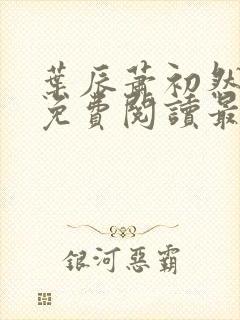 葉辰蕭初然
免費閱讀最
銀河惡霸